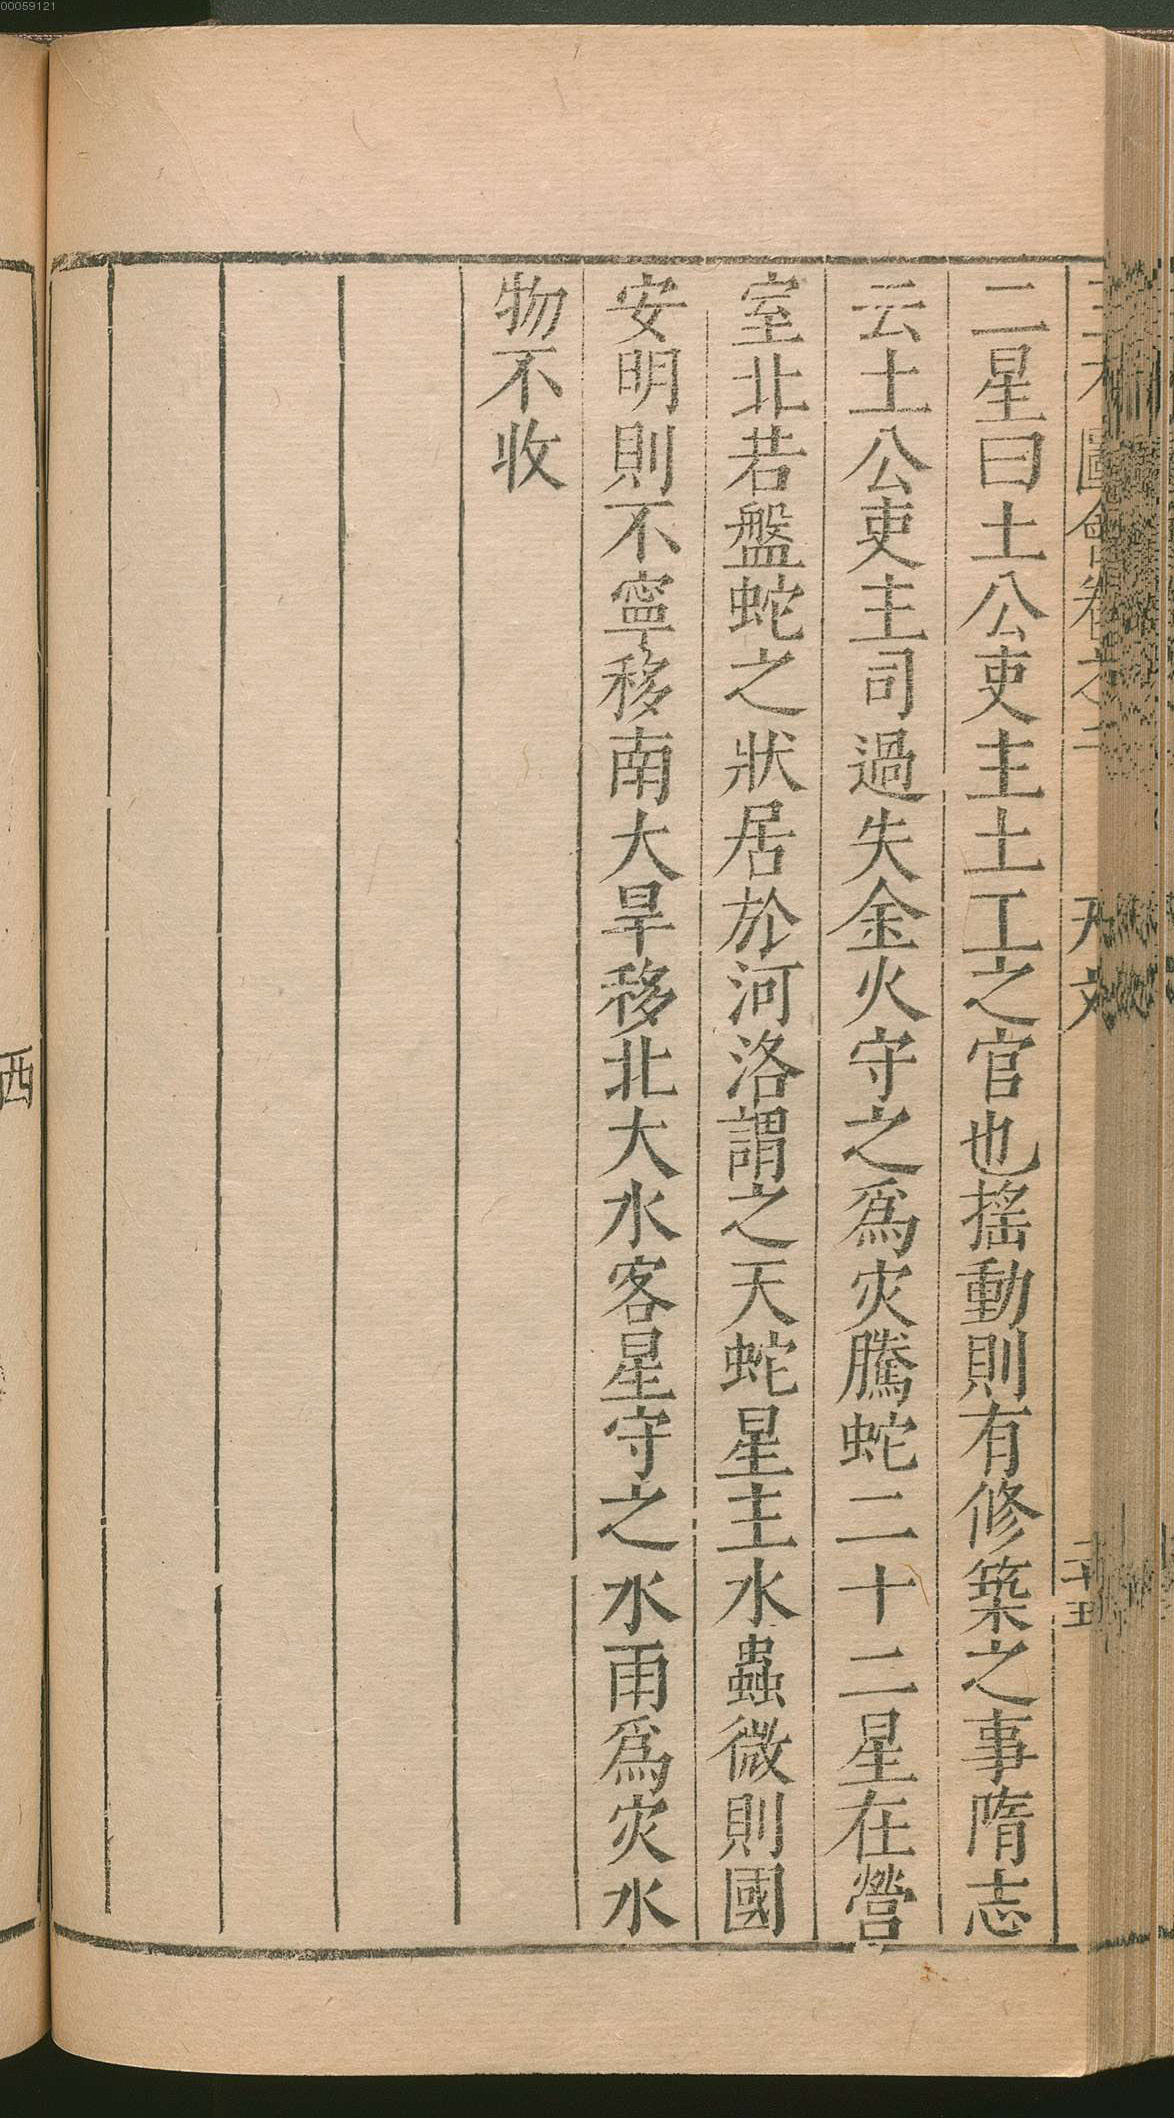 00059121
二星曰土公吏主土工之官也搖動則有修築之事隋志
云土公吏主司過失金火守之爲灾騰蛇二十二星在營
室北若盤蛇之狀居於河洛謂之天蛇星主水蟲微則國
安明則不寧移南大旱移北大水客星守之水雨爲灾水
物不收
西